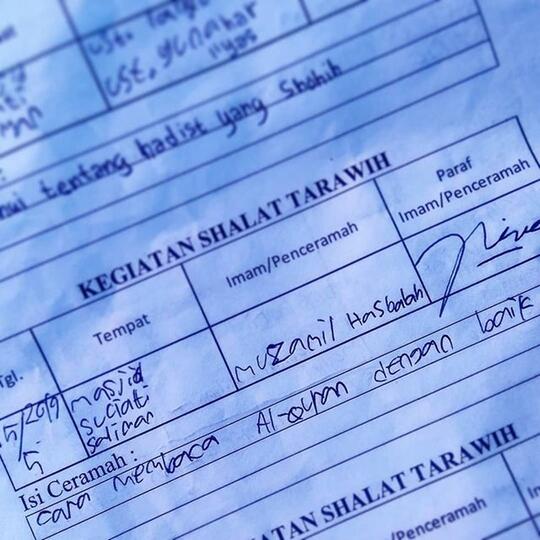 ust.
ust. yunahar
ilyas
tentang hadist yang Shohih
KEGIATAN SHALAT TARAWIH
Tgl.
Tempat
Imam/Penceramah
Paraf
Imam/Penceramah
masjid
suciati
saliman
muzamil Hasballah
Isi Ceramah :
cara membaca Al-quran dengan baik
KEGIATAN SHALAT TARAWIH
Tempat
Imam/Penceramah